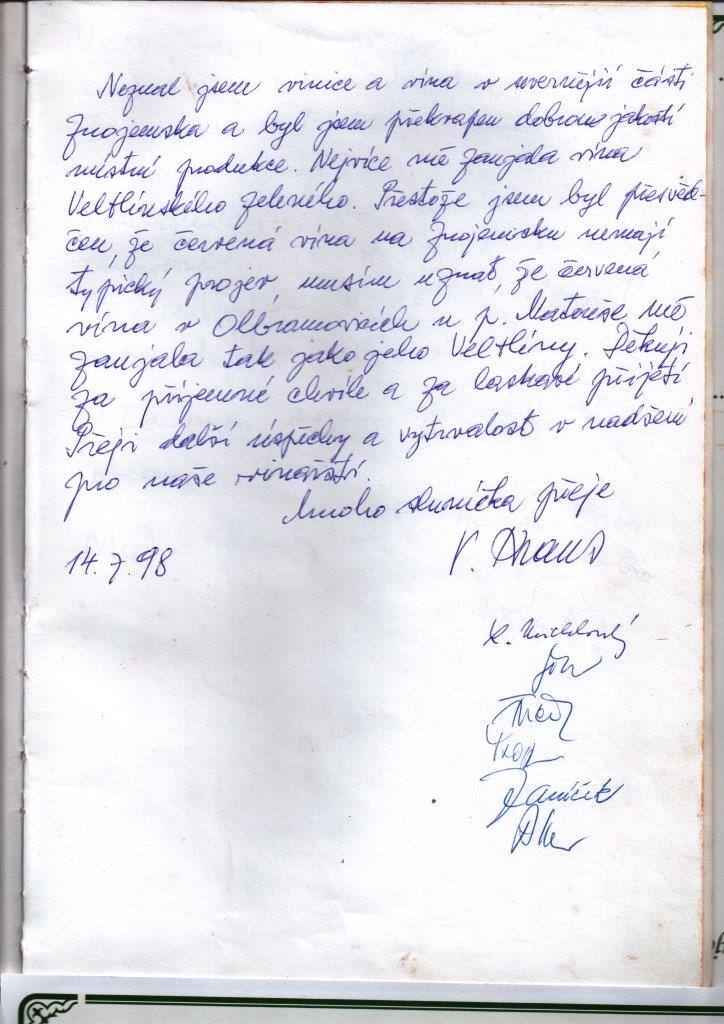 Neznal jsem vinice a vína v severnější části
Znojemska a byl jsem překvapen dobrou jakostí
místní produkce. Nejvíce mě zaujala vína
Veltlínského zeleného. Přestože jsem byl přesvěd-
čen, že červená vína na Znojemsku nemají
typický projev musím uznat, že červená
vína v Olbramovicích u p. Matouše mě
zaujala tak jako jeho Veltlíny. Děkuji
za příjemné chvíle a za laskavé přijetí
Přeji další úspěchy a vytrvalost v nadšení
pro naše vinařství.
Mnoho sluníčka přeje
14.7.98 V. Kraus